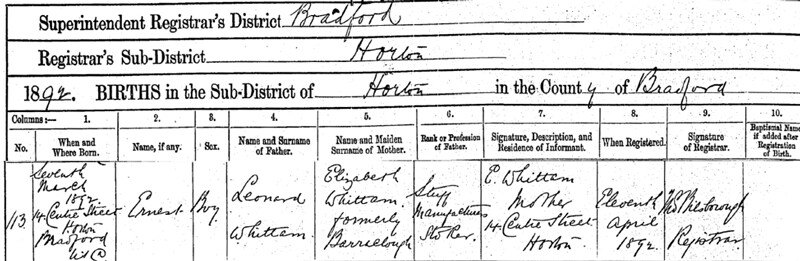 Superintendent Registrar's District Bradford
Registrar's Sub-District Horton
1892. BIRTHS in the Sub-District of Horton in the County of Bradford
Columns:— 1. 2. 3. 4. 5. 6. 7. 8. 9. 10.
No. When and Where Born. Name, if any. Sex. Name and Surname of Father. Name and Maiden Surname of Mother. Rank or Profession of Father. Signature, Description, and Residence of Informant. When Registered. Signature of Registrar. Baptismal Name if added after Registration of Birth.
113.
Seventh
March
1892
14 Centre Street
Horton
Bradford
Ernest
Boy
Leonard
Whittam.
Elizabeth
Whittam.
formerly
Barraclough
Stuff
Manufacturers
Stoker.
E. Whittam
Mother
14 Centre Street
Horton.
Eleventh
April
1892.
Registrar